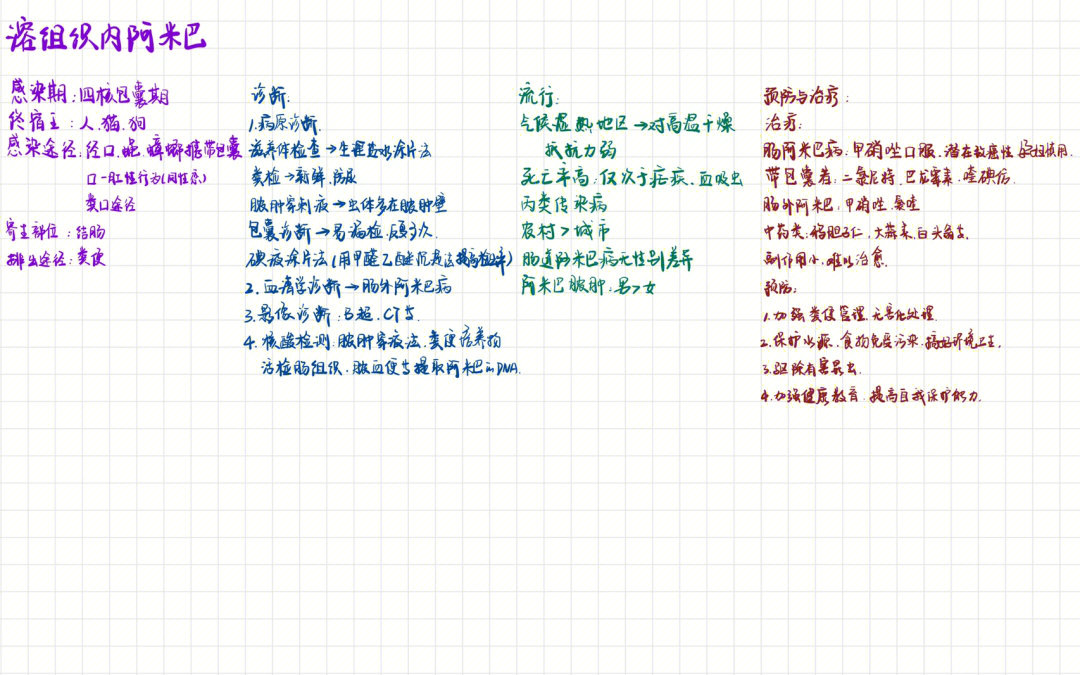 溶组织内阿米巴
感染期:四核包囊期
终宿主:人.猫.狗
感染途径:经口.蝇.蟑螂携带包囊
口-肛性行为(同性恋)
粪口途径
寄生部位:结肠
排出途径:粪便
诊断:
1.病原诊断.
滋养体检查→生理盐水涂片法
粪检→新鲜.防尿
脓肿穿刺液→虫体多在脓肿壁
包囊诊断→易漏检.反复多次.
碘液涂片法(用甲醛乙醚沉淀法提高检出率)
2.血清学诊断→肠外阿米巴病
3.影像诊断:B超.CT等.
4.核酸检测:脓肿穿液法.粪便培养物
活检肠组织.脓血便等提取阿米巴的DNA.
流行:
气候湿热地区→对高温干燥
抵抗力弱
死亡率高:仅次于疟疾.血吸虫
丙类传染病
农村>城市
肠道阿米巴病无性别差异
阿米巴脓肿:男>女
预防与治疗:
治疗:
肠阿米巴病:甲硝唑口服.潜在致癌性.孕妇慎用.
带包囊者:二氯尼特.巴龙霉素.喹碘仿.
肠外阿米巴:甲硝唑.氯喹
中药类:鸦胆子仁.大蒜素.白头翁等.
副作用小.难以治愈.
预防:
1.加强粪便管理.无害化处理.
2.保护水源.食物免受污染.搞好环境卫生.
3.驱除有害昆虫.
4.加强健康教育.提高自我保护能力.